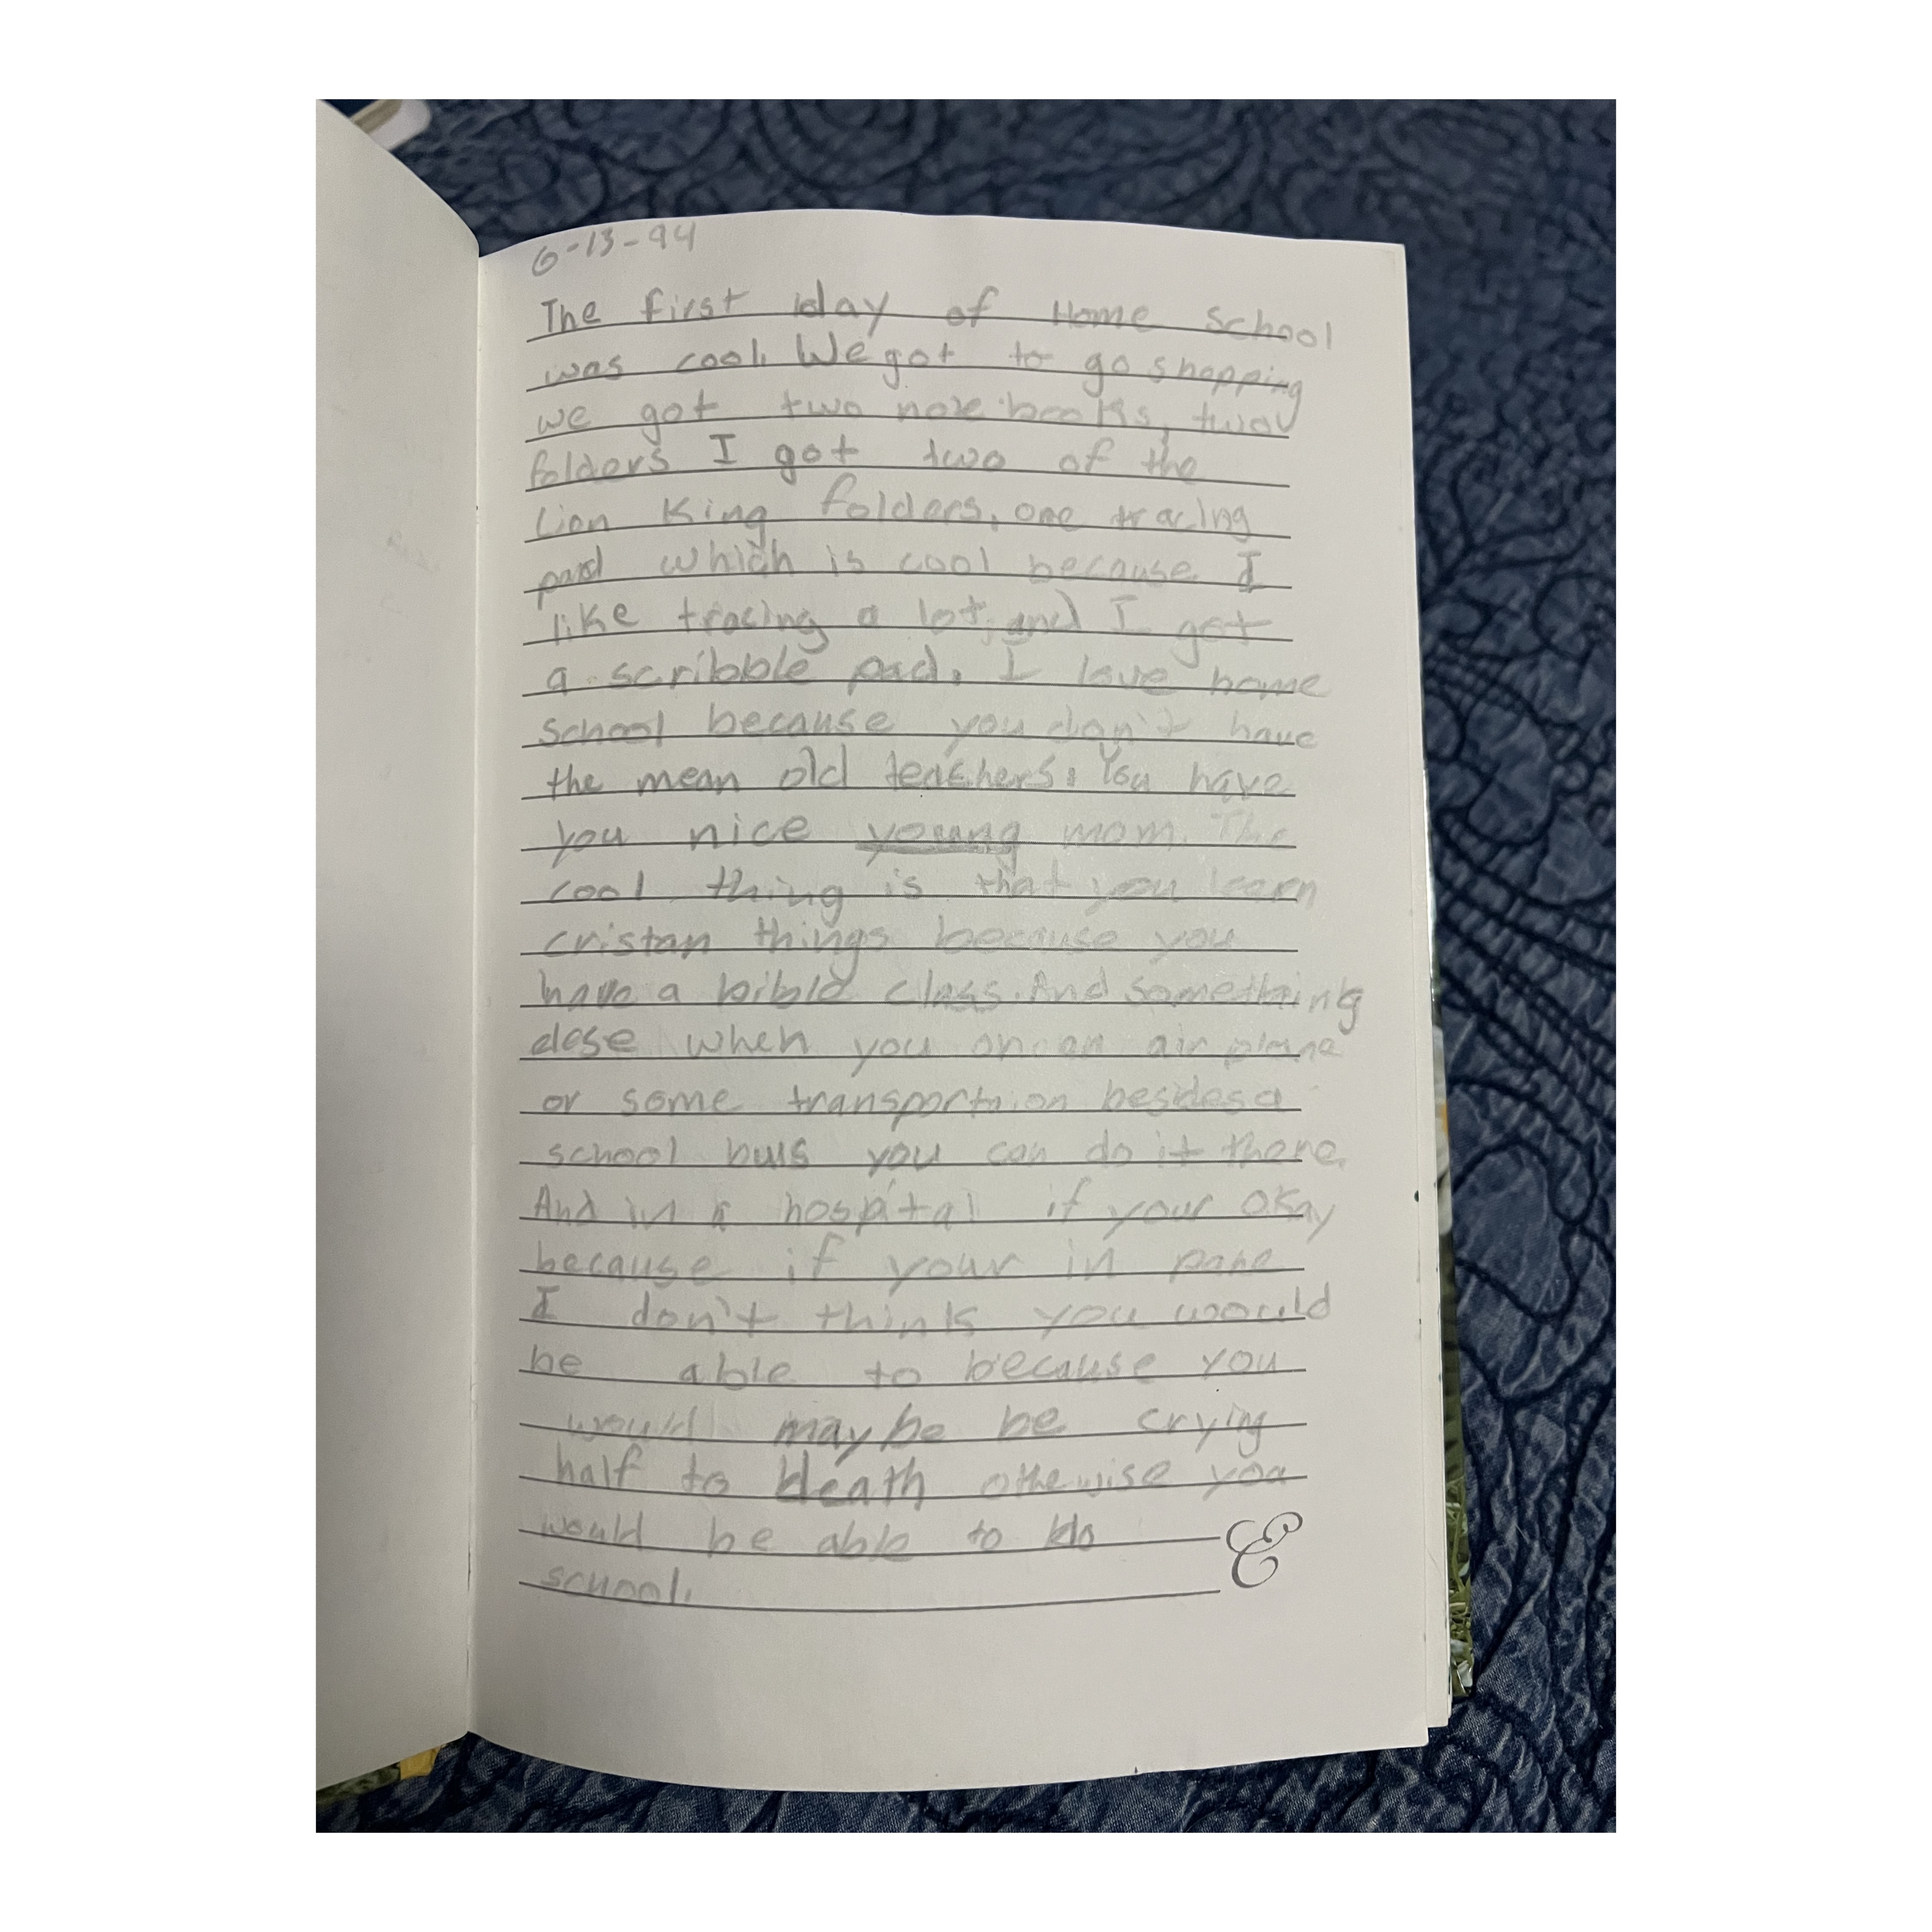 6-13-94
The first day of Home School
was cool. We got to go shopping
we got two note books, two
folders I got two of the
Lion King folders, one tracing
pad which is cool because I
like tracing a lot, and I got
a scribble pad. I love home
school because you don't have
the mean old teachers. You have
you nice young mom. The
cool thing is that you learn
cristan things because you
have a bible class. And something
else when you on an air plane
or some besides a
school bus you can do it there.
And in a hospital if your okay
because if your in pane
I don't think you would
be able to because you
would maybe be crying
half to death otherwise you
would be able to do
school.